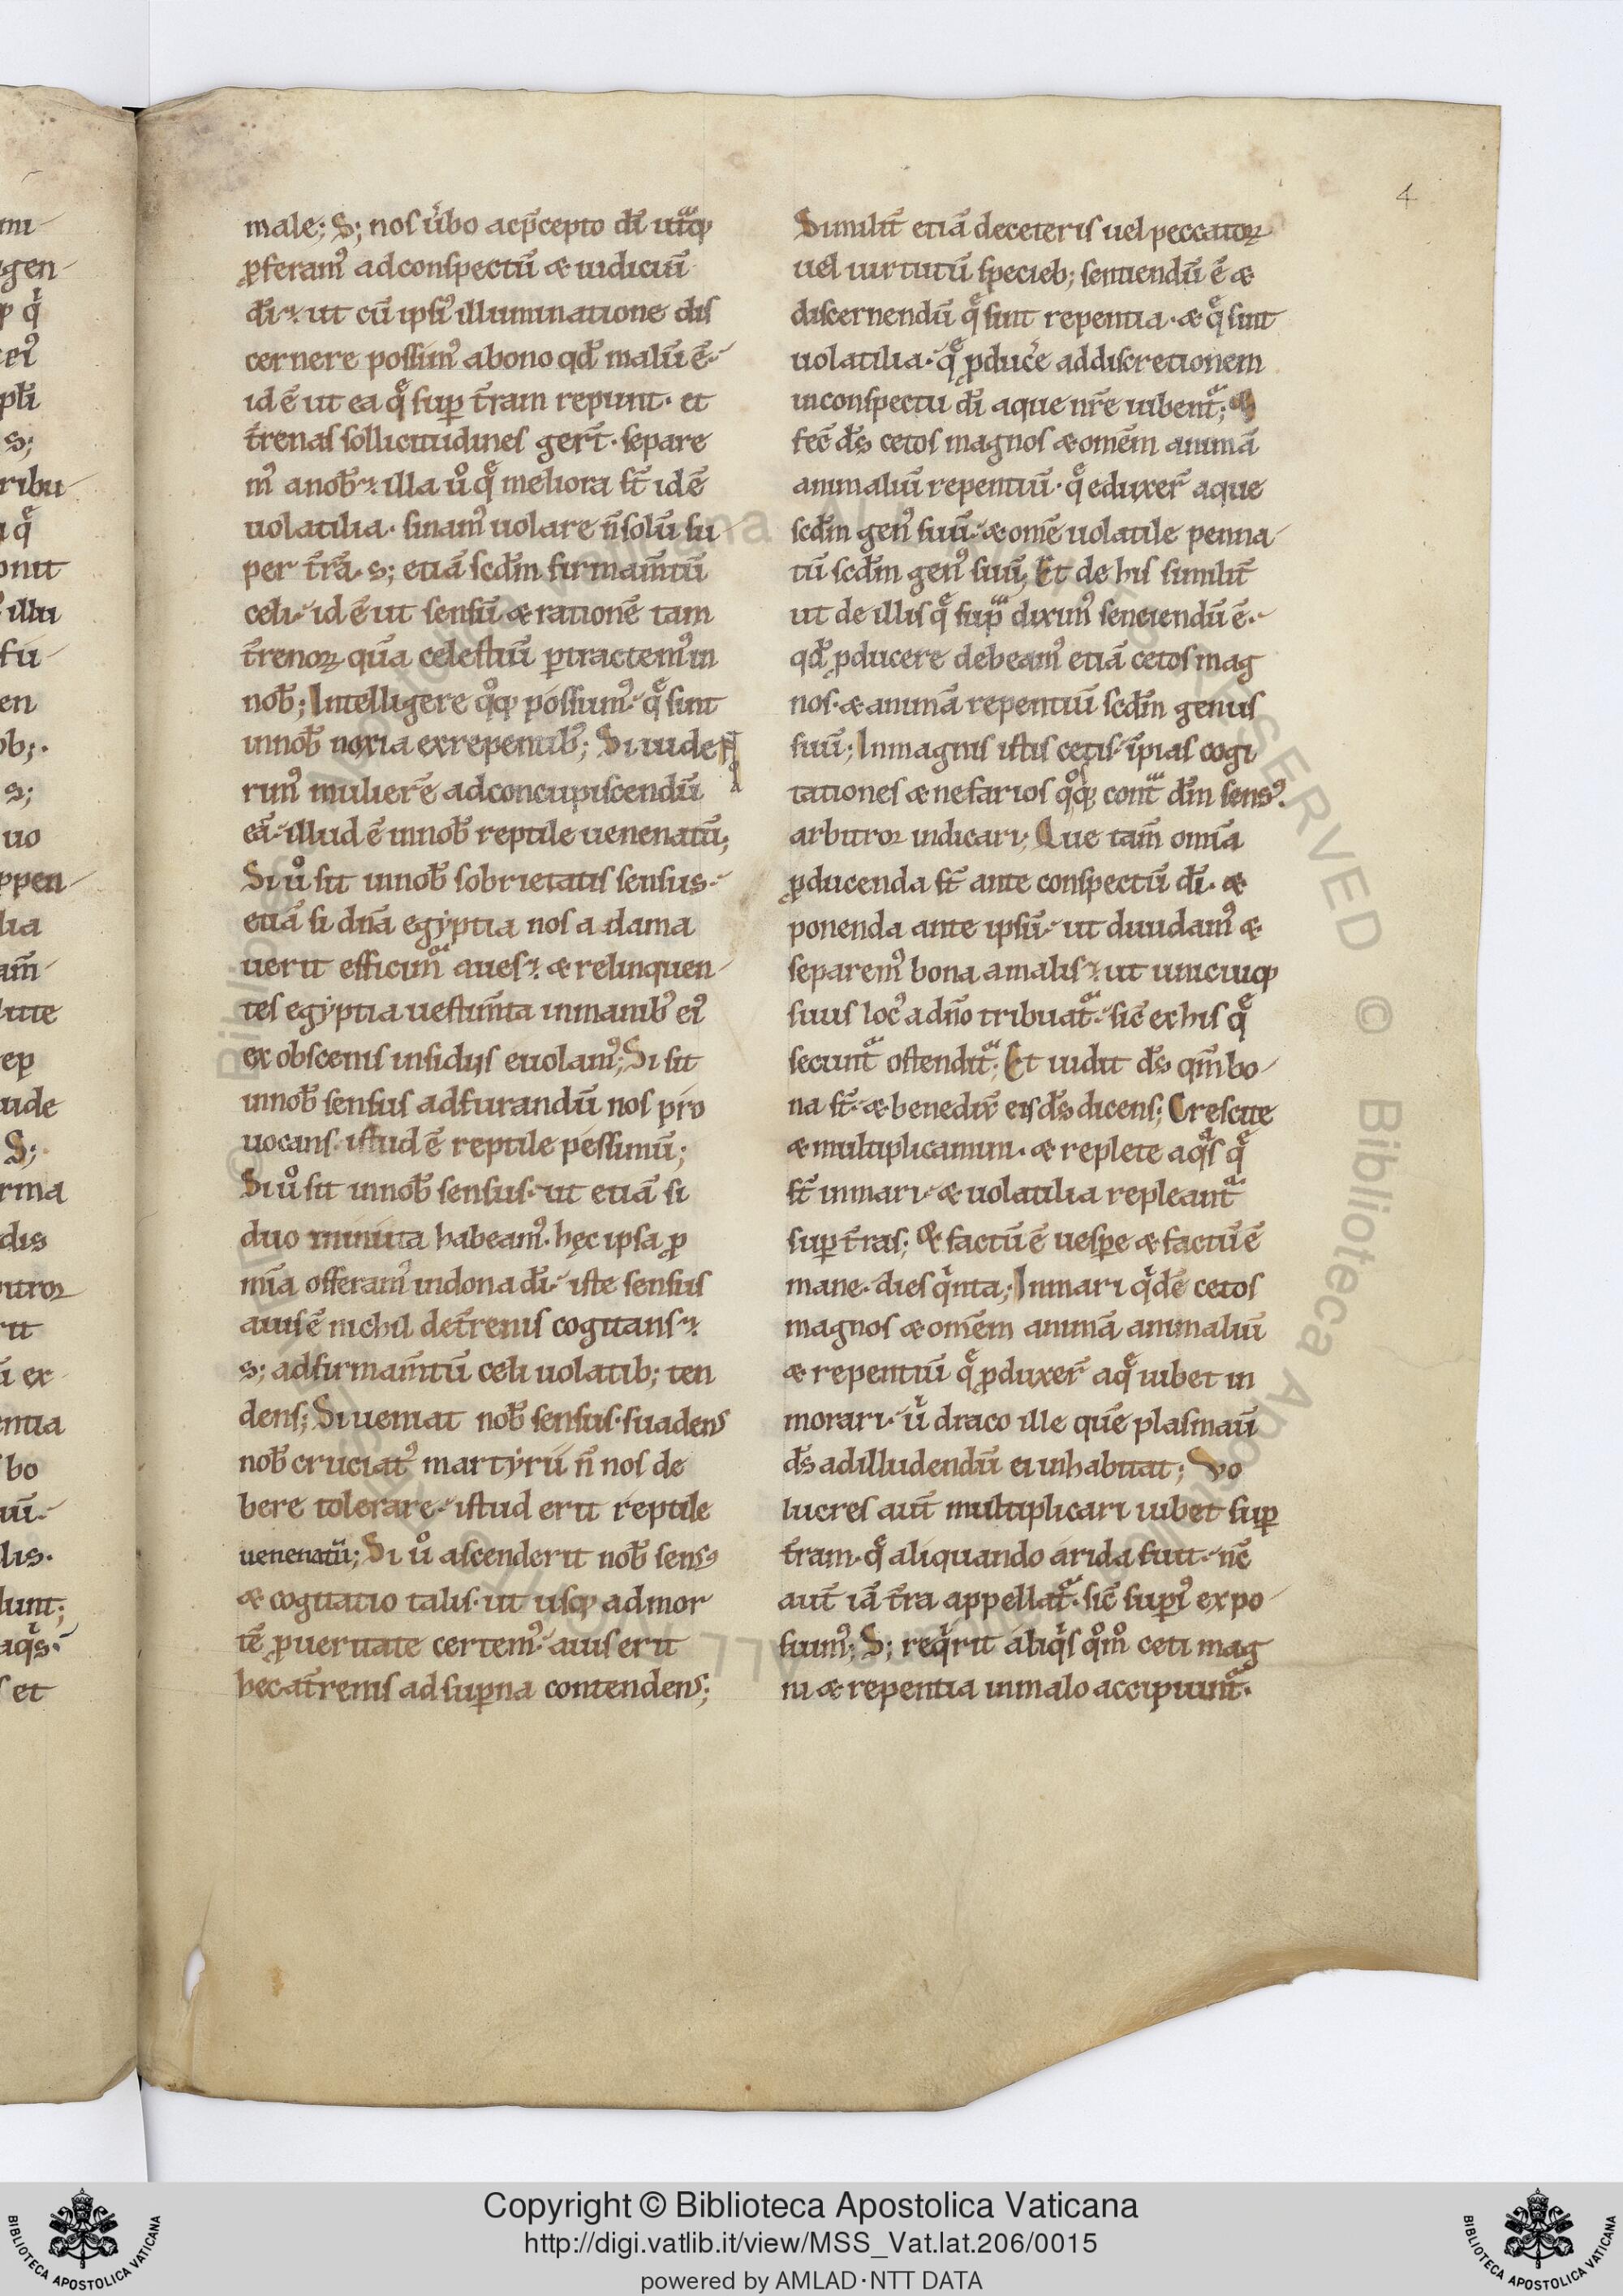 4
male; S; nos ūbo acp̄cepto dī ut̄q;
ꝓferam᷒ adconspectū & iudiciū
dī. ut cū ipsi᷒ illuminatione dis
cernere possim᷒ abono qđ malū ē.
id ē ut ea q̄ suꝑ t̄ram repunt. et
t̄renas sollicitudines ger̄t. separe
m᷒ anob̄. illa ů q̄ meliora st̄ id ē
uolatilia. sinam᷒ uolare n̄ solū su
per t̄rā. s; etiā scđm firmam̄tū
celi. id ē ut sensū & rationē tam
t̄renoꝝ quā celestiū ꝑtractem᷒ in
nob̄; Intelligere qͦq; possum᷒. q̄ sint
innob̄ noxia exrepentib̄; Si uide
rim᷒ mulierē adconcupiscendū
eā. illud ē innob̄ reptile uenenatū;
Si ů sit innob̄ sobrietatis sensus.
etiā si dn̄a egyptia nos a dama
uerit efficim̄ aues. & relinquen
tes egyptia uestim̄ta inmanib᷒ ei᷒
ex obscenis insidijs euolam᷒; Si sit
innob̄ sensus adfurandū nos pro
uocans. istud ē reptile pessimū;
Si ů sit innob̄ sensus. ut etiā si
duo minuta habeam᷒. hęc ipsa ꝓ
mīa offeram᷒ indona dī. iste sensus
auis ē nichil det̄renis cogitans.
s; adfirmam̄tū celi uolatib; ten
dens; Si ueniat nob̄ sensus. suadens
nob̄ cruciat᷒ martyrū n̄ nos de
bere tolerare. istud erit reptile
uenenatū; Si ů ascenderit nob̄ sens᷒
& cogitatio talis. ut usq; ad mor
tē ꝓ ueritate certem᷒. auis erit
hec at̄renis ad suꝑna contendens;
Similit̄ etiā deceteris uel peccatoꝝ
uel uirtutū specieb; sentiendū ē &
discernendū q̄ sint repentia. & q̄ sint
uolatilia. q̄ ꝓduc̄e addiscretionem
inconspectu dī aque nr̄e iubent̄; &
fec̄ d̄s cetos magnos & om̄em animā
animaliū repentiū. q̄ eduxer̄ aque
scđm gen᷒ suū. & om̄e uolatile penna
tū scđm gen᷒ suū; Et de his similit̄
ut de illis q̄ supͣ dixim᷒ senciendū ē.
qđ ꝓducere debeam᷒ etiā cetos mag
nos. & animā repentiū scđm genus
suū; Inmagnis istis cetis. īpias cogi
tationes & nefarios qͦsq; contͣ dm̄ sens᷒.
arbitror indicari; Que tam̄ omīa
ꝓducenda st̄ ante conspectū dī. &
ponenda ante ipsū. ut diuidam᷒ &
separem᷒ bona amalis. ut unicuiq;
suus loc᷒ adn̄o tribuat̄. sic̄ ex his q̄
secunt̄ ostendit̄; Et uidit d̄s qm̄ bo
na st̄. & benedix̄ eis d̄s dicens; Crescite
& multiplicamini. & replete aqͣs q̄
st̄ inmari. & uolatilia repleant̄
suꝑ t̄ras; & factū ē uesꝑe & factū ē
mane. dies qͥnta; Inmari qͥdē cetos
magnos & om̄em animā animaliū
& repentiū q̄ ꝓduxer̄ aq̄ iubet in
morari. uͥ draco ille quē plasmaū
d̄s adilludendū ei inhabitat; Vo
lucres aut̄ multiplicari iubet suꝑ
t̄ram. q̄ aliquando arida fuit. nc̄
aut̄ iā t̄ra appellat̄. sic̄ suꝑi᷒ expo
suim᷒; S; reqͥrit aliqͥs qͦmͦ ceti mag
ni & repentia inmalo accipiunt̄.
Copyright © Biblioteca Apostolica Vaticana
http://digi.vatlib.it/view/MSS_Vat.lat.206/0015
powered by AMLAD·NTT DATA
BIBLIOTECA APOSTOLICA VATICANA
BIBLIOTECA APOSTOLICA VATICANA